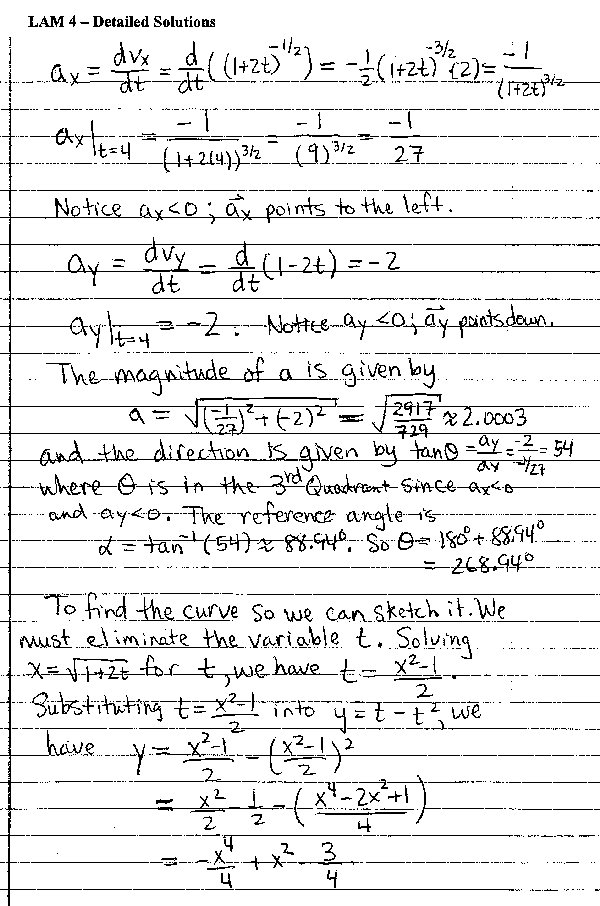 LAM 4 – Detailed Solutions
aₓ = dvₓ/dt = d/dt((1+2t)^(-1/2)) = -1/2(1+2t)^(-3/2)(2) = -1/(1+2t)^(3/2)
aₓ|ₜ₌₄ = -1/(1+2(4))^(3/2) = -1/(9)^(3/2) = -1/27
Notice aₓ<0; a⃗ₓ points to the left.
a_y = dv_y/dt = d/dt(1-2t) = -2
a_y|ₜ₌₄ = -2. Notice a_y<0; a⃗_y points down.
The magnitude of a is given by
a = √((-1/27)²+(-2)²) = √(2917/729) ≈ 2.0003
and the direction is given by tanθ = a_y/aₓ = -2/(-1/27) = 54
where θ is in the 3rd Quadrant since aₓ<0
and a_y<0. The reference angle is
α = tan⁻¹(54) ≈ 88.94°. So θ = 180° + 88.94°
= 268.94°
To find the curve so we can sketch it. We
must eliminate the variable t. Solving
x = √(1+2t) for t, we have t = (x²-1)/2.
Substituting t = (x²-1)/2 into y = t - t², we
have y = (x²-1)/2 - ((x²-1)/2)²
= x²/2 - 1/2 - ((x⁴-2x²+1)/4)
= -x⁴/4 + x² - 3/4